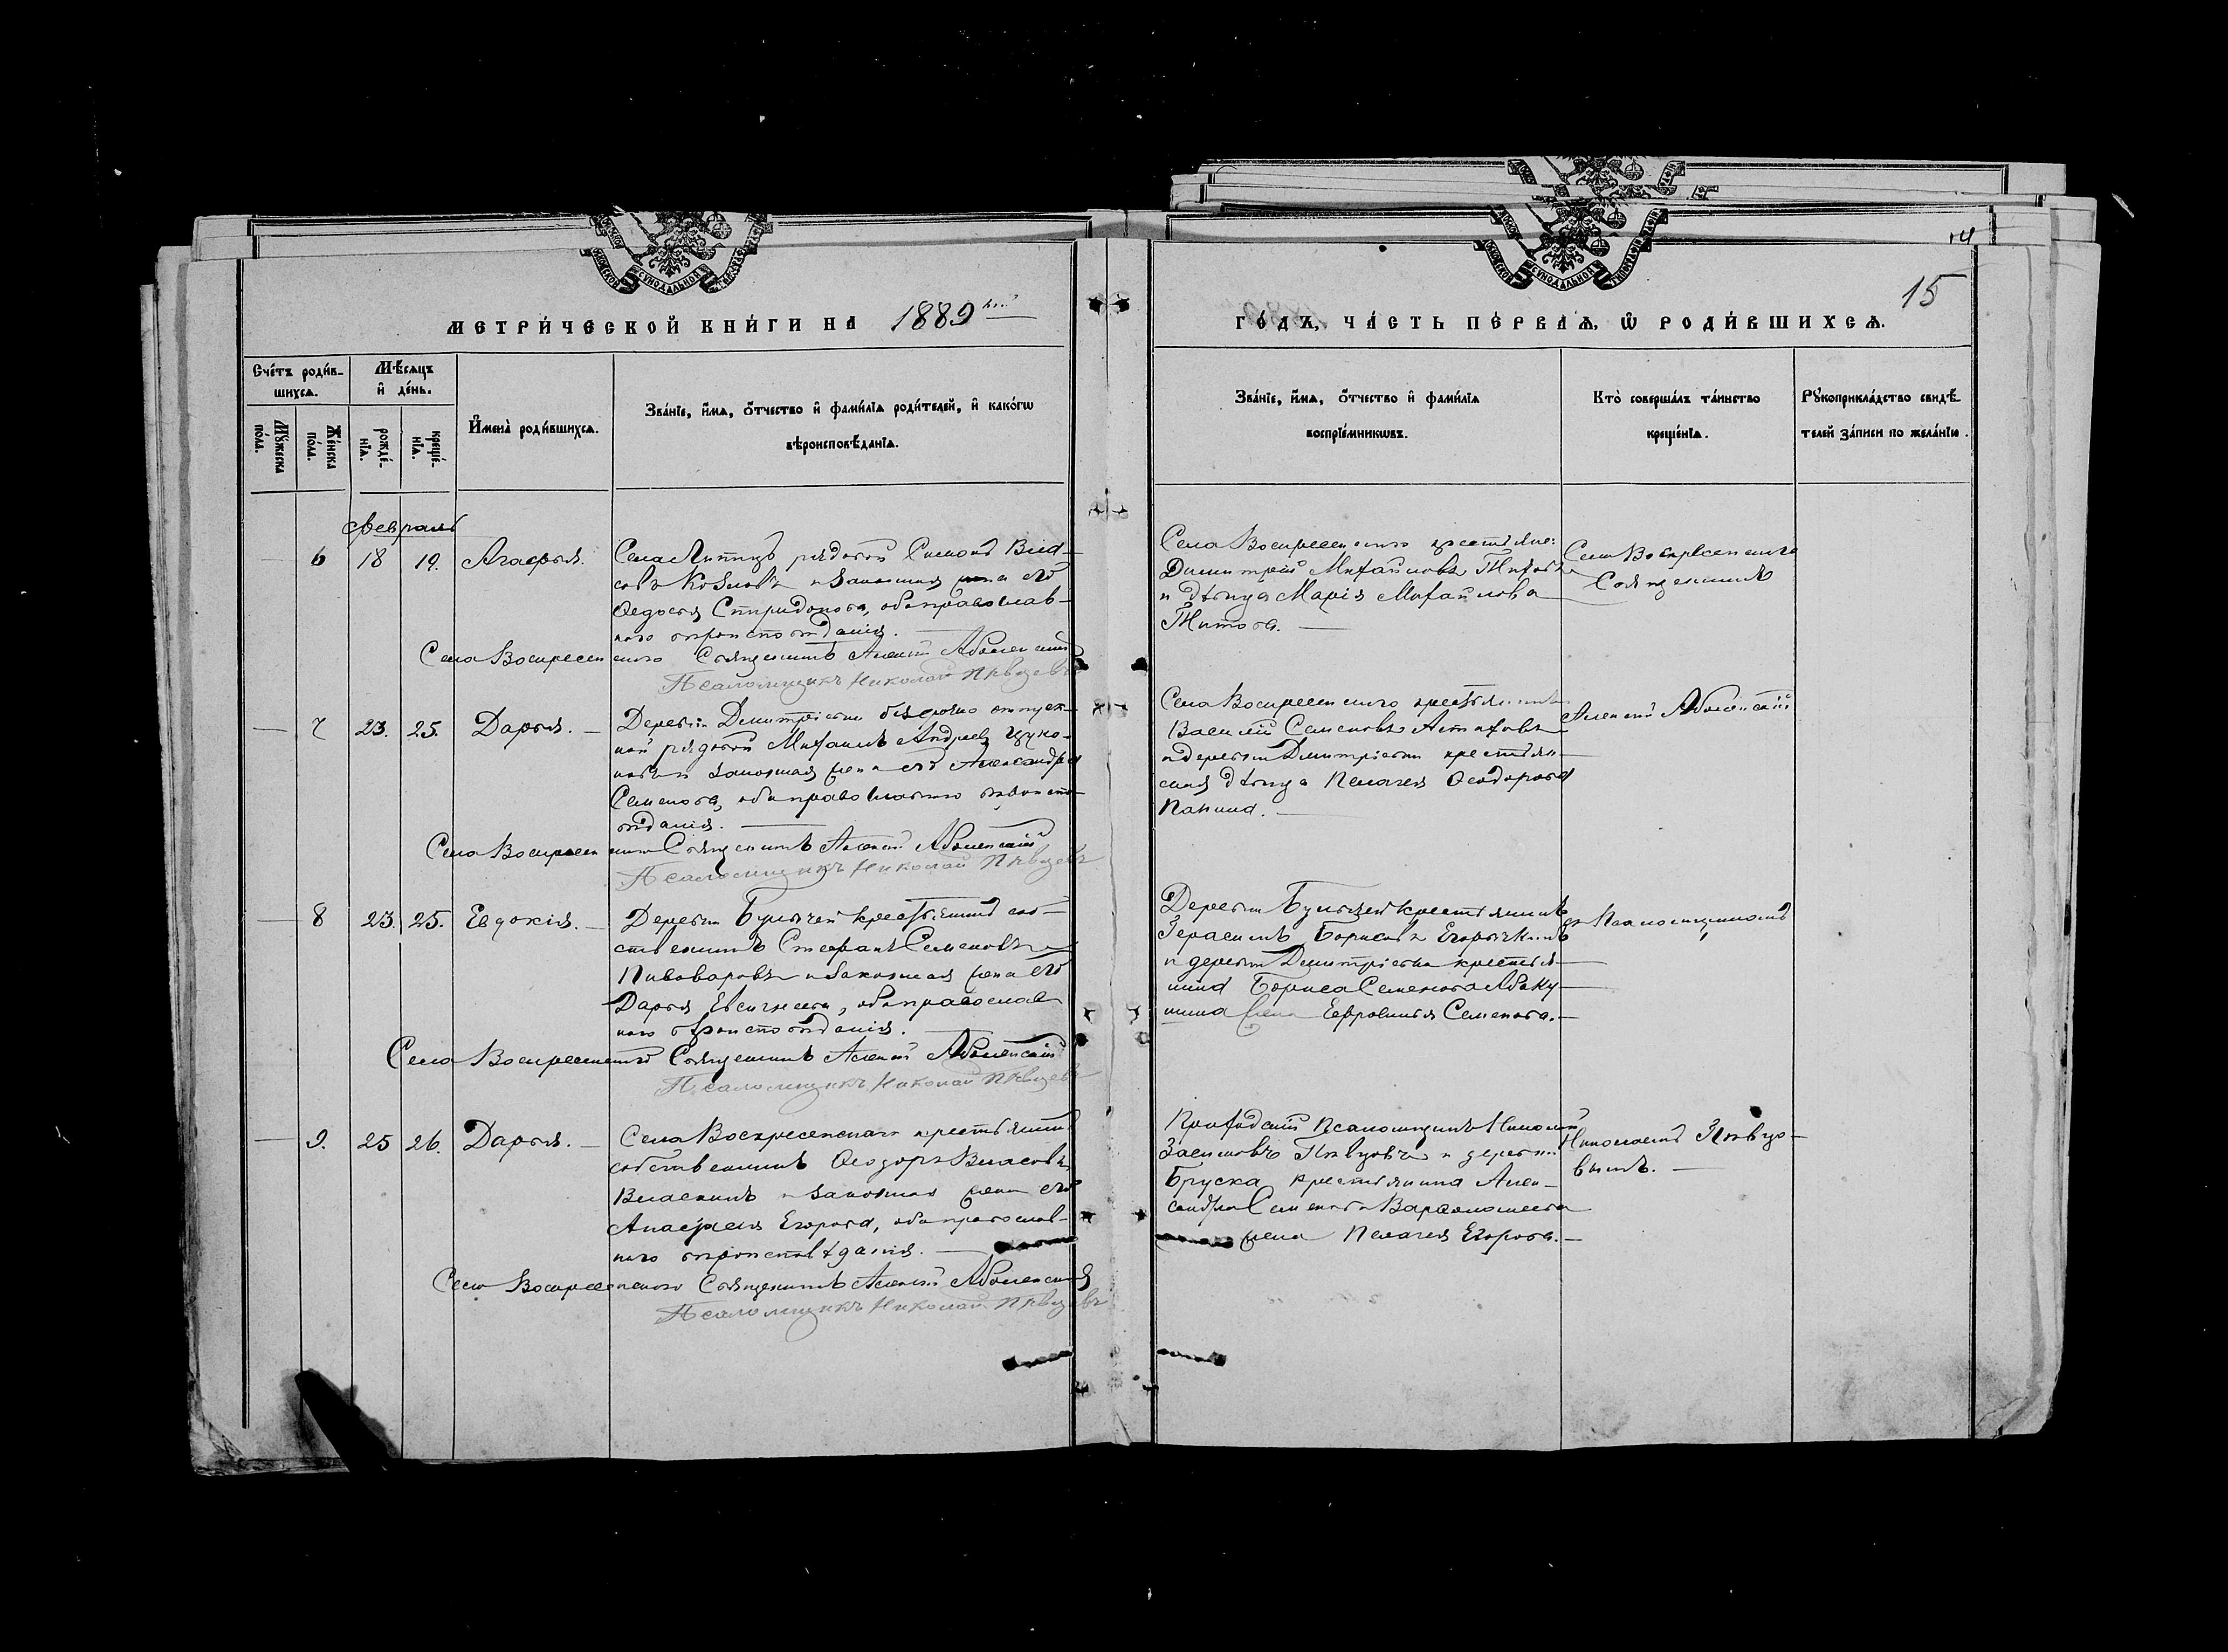 14
15
МЕТРИ́ЧЕСКОЙ КНИ́ГИ НА 1889
ГО́ДЪ, ЧА́СТЬ ПЕ́РВАѦ, Ѽ РОДИ́ВШИХСѦ.
Счéтъ роди́в-
шихсѧ.
Мѣ́сѧцъ
и҆ де́нь.
Мꙋ́жеска
по́ла.
Же́нска
по́ла.
рожде́-
нїѧ.
креще́-
нїѧ.
И҆мена̀ роди́вшихсѧ.
Зва́нїе, и҆́мѧ, ѻ҆́тчество и҆ фами́лїѧ роди́телей, и҆ како́гѡ
вѣроисповѣ́данїѧ.
Зва́нїе, и҆́мѧ, ѻ҆́тчество и҆ фами́лїѧ
воспрїе́мникѡвъ.
Кто̀ соверша́лъ та́инство
креще́нїѧ.
Рꙋкоприкла́дство свидѣ́-
телей за́писи по жела́нїю.
Февраль
6 18 19. Агафья.
Села рядовой Симонъ Влa-
совъ Козловъ и законная жена его
Ѳедосья Спиридонова, оба православ-
наго вѣроисповѣданія.
Села Воскресенскаго Священникъ Алексій Аболенскій
Псаломщикъ Николай Пѣвцовъ
Села Воскресенскаго
Димитрій Михайловъ Титовъ
и дѣвица Марія Михайлова
Титова.
Села Воскресенскаго
Священникъ
7 23. 25. Дарья.
Деревни Димитріевки безсрочно отпуск-
ной рядовой Михаилъ Андреевъ
законная жена его Александра
Семенова, оба православнаго вѣроиспо-
вѣданія.
Села Воскресенскаго Священникъ Алексій Аболенскій
Псаломщикъ Николай Пѣвцовъ
Села Воскресенскаго крестьянинъ
Василій Семеновъ Астафовъ
и деревни Димитріевки крестьян-
ская дѣвица Пелагея Ѳеодорова
Панина.
Алексій Аболенскій
8 23. 25. Евдокія.
Деревни крестьянинъ соб-
ственникъ Стефанъ Семеновъ
Пивоваровъ и законная жена его
Дарья Евсигнеева, оба православ-
наго вѣроисповѣданія.
Села Воскресенскаго Священникъ Алексій Аболенскій
Псаломщикъ Николай Пѣвцовъ
Деревни крестьянинъ
Герасимъ Борисовъ Егорычкинъ
и деревни Димитріевки крестья-
нина Бориса Семенова Абаку-
мина жена Евфросинья Семенова.
съ Псаломщикомъ
9. 25 26. Дарья.
Села Воскресенскаго крестьянинъ
собственникъ Ѳеодоръ Власовъ
Власкинъ и законная жена его
Анастасія Егорова, оба православ-
наго вѣроисповѣданія.
Села Воскресенскаго Священникъ Алексій Аболенскій
Псаломщикъ Николай Пѣвцовъ
Приходскій Псаломщикъ Николай
Засимовъ Пѣвцовъ и деревни
Бруска крестьянина Алек-
сандра Семенова Варѳоломеева
жена Пелагея Егорова.
Николаемъ Пѣвцо-
вымъ.